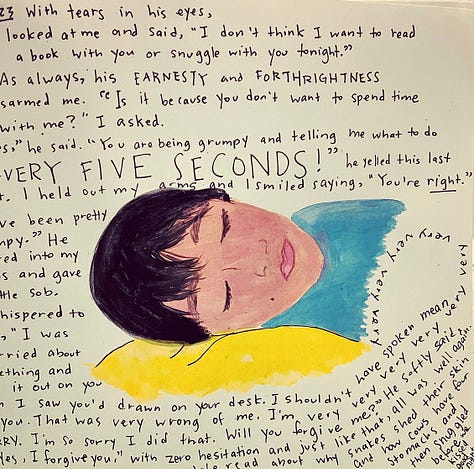 23 With tears in his eyes,
looked at me and said, "I don't think I want to read
a book with you or snuggle with you tonight."
As always, his EARNESTY and FORTHRIGHTNESS
sarmed me. "Is it because you don't want to spend time
with me?" I asked.
es," he said. "You are being grumpy and telling me what to do
VERY FIVE SECONDS!" he yelled this last
t. I held out my arms and I smiled saying, "You're right."
ve been pretty
mpy." He
red into my
s and gave
ttle sob.
whispered to
, "I was
rried about
ething and
it out on you
n I saw you'd drawn on your desk. I shouldn't have spoken mean
you. That was very wrong of me. I'm very very very very very very very very very
RRY. I'm so sorry I did that. Will you forgive me?" He softly said,
Yes, I forgive you," with zero hesitation and just like that, all was well again
read about why snakes shed their skin
and how cows have four
stomachs, and
then snuggled
before